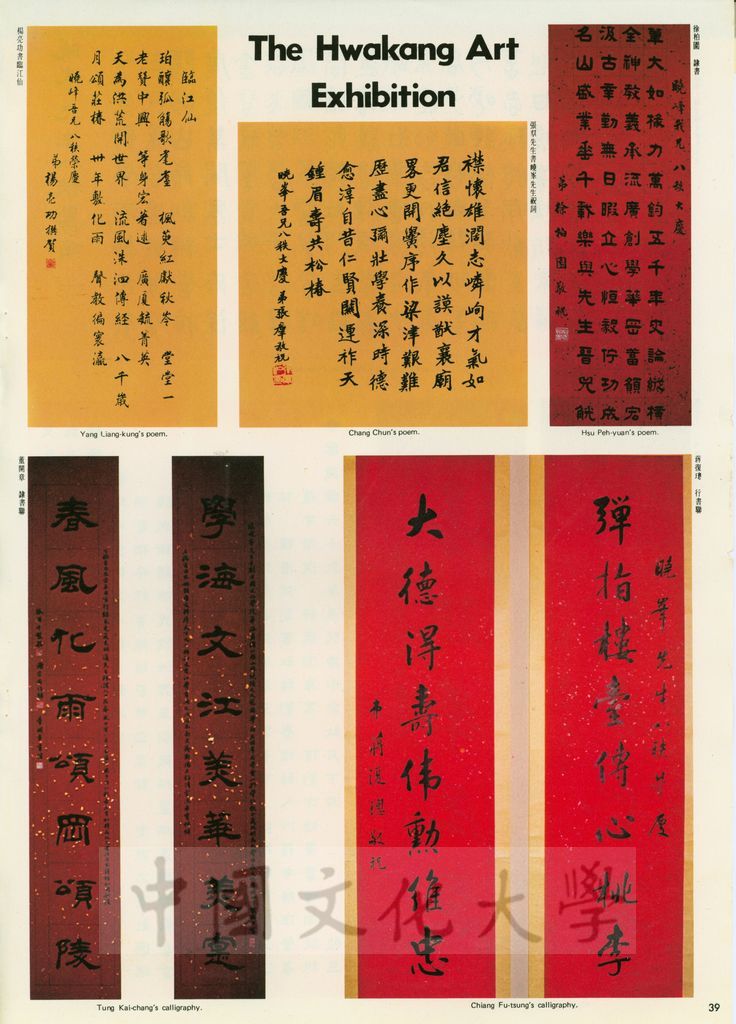 The Hwakang Art
Exhibition
楊亮功書臨江仙
臨江仙
珀醲弧觴歌耄耋 楓萸紅獻秋岑 堂堂一
老贊中興 等身宏著述 廣廈毓菁英
天為洪荒開世界 流風洙泗傳經 八千歲
月頌莊椿 卅年敷化雨 聲教徧寰瀛
曉峰吾兄八秩榮慶
弟楊亮功撰賀
Yang Liang-kung's poem.
張羣先生書曉峯先生祝詞
襟懷雄濶志嶙峋才氣如
君信絕塵久以謨猷襄廟
畧更開黌序作梁津艱難
歷盡心彌壯學養深時德
愈淳自昔仁賢關運祚天
鍾眉壽共松椿
曉峯吾兄八秩大慶 弟張羣敬祝
Chang Chun's poem.
徐柏園 隸書
曉峰我兄八秩大慶
筆大如椽力萬鈞五千年史論縱橫
全神教義承流廣創學華岡蓄領宏
汲古幸勤無日暇立心恒毅仔功成
名山盛業垂千載樂與先生晉兕觥
弟徐柏園敬祝
Hsu Peh-yuan's poem.
董開章 隸書聯
學海文江羨華美靈
春風化雨頌岡頌陵
Tung Kai-chang's calligraphy.
蔣復璁 行書聯
曉峯先生八秩榮慶
彈指樓臺傳心桃李
大德得壽偉勳維忠
弟蔣復璁敬祝
Chiang Fu-tsung's calligraphy.
中國文化大學
39